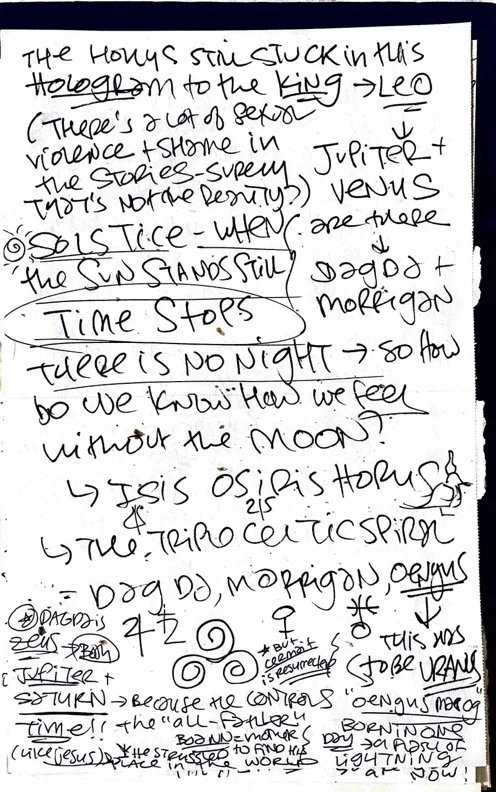 THE HORUS STILL STUCK in this
Hologram to the KING → LEO
(THERE'S a LOT OF SEXUAL
VIOLENCE + SHAME in
the STORIES - SURELY
THAT'S NOT the REALITY?)
JUPITER +
VENUS
are there
DAGDA +
MORRIGAN
SOLSTICE - WHEN
the SUN STANDS STILL
TIME STOPS
THERE IS NO NIGHT → SO HOW
DO WE KNOW HOW WE feel
without the MOON?
↳ ISIS OSIRIS HORUS
↳ THE TRIPLE CELTIC SPIRAL
= DAGDA, MORRIGAN, OENGUS
DAGDA is
ZEUS → Both
JUPITER +
SATURN → BECAUSE HE CONTROLS
TIME!! + the "all-FATHER"
(LIKE JESUS)
* BUT
is resurrected
THIS HAS
to BE URANUS
"OENGUS macog"
BOANN = mother
* HE STRUGGLED to FIND HIS
PLACE in the WORLD
BORN IN ONE
DAY = a FLASH of
LIGHTNING
NOW!